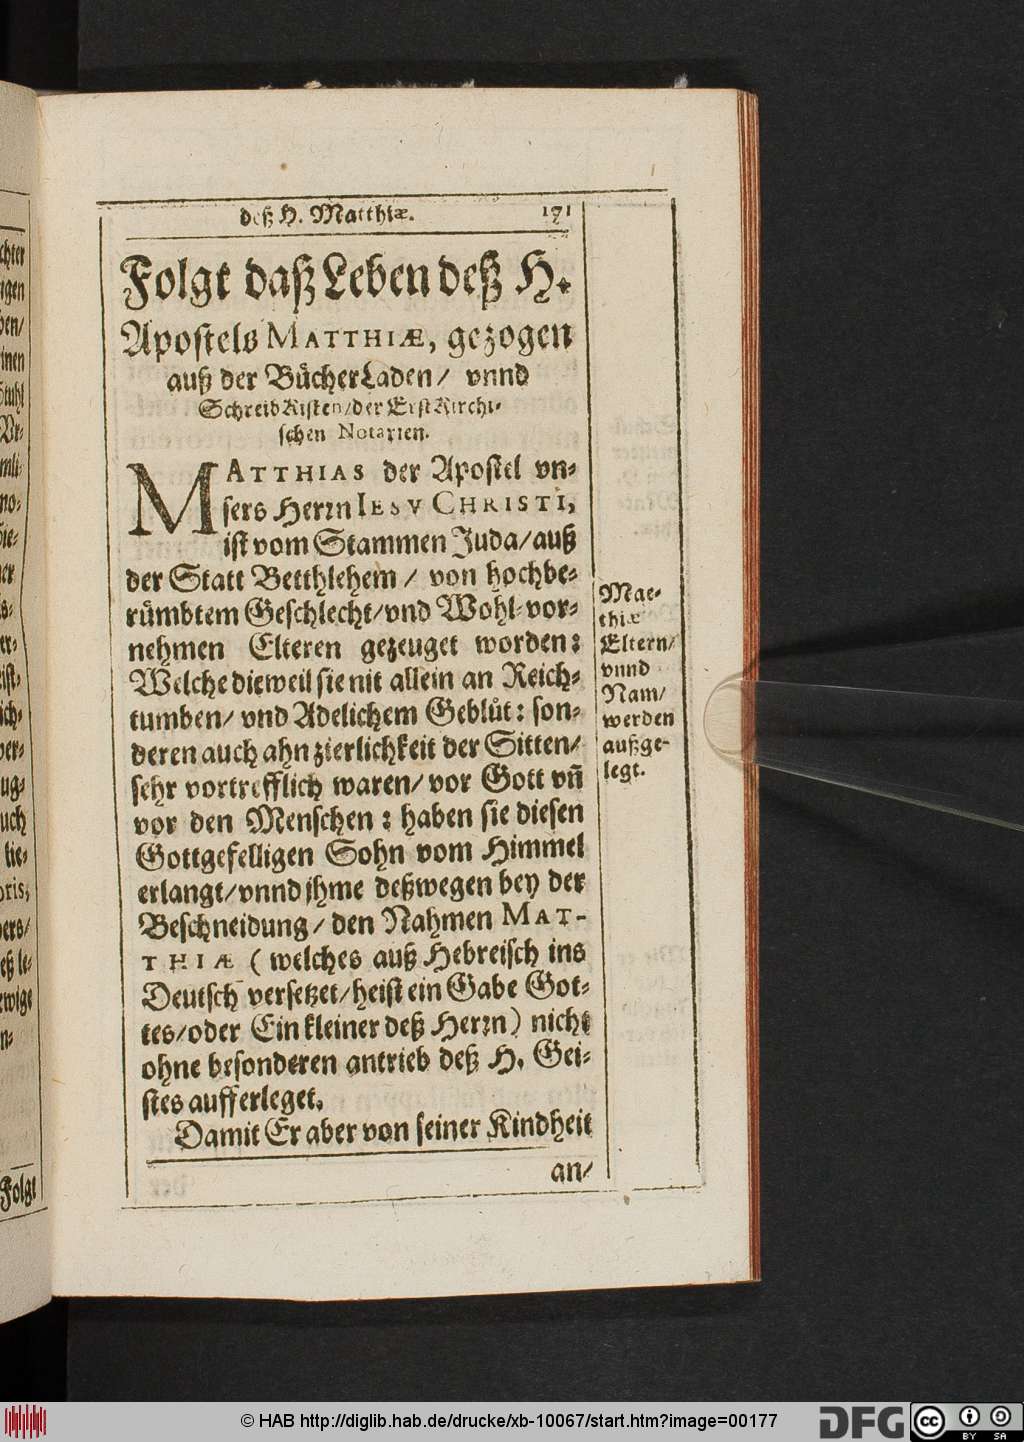 deß H. Matthiæ. 171
Folgt daß Leben deß H.
Apostels MATTHIÆ, gezogen
auß der BücherLaden / vnnd
SchreibKisten/der ErstKirchi-
schen Notarien.
MATTHIAS der Apostel vn-
sers Herrn IESV CHRISTI,
ist vom Stammen Juda/auß
der Statt Betthlehem / von hochbe-
rümbtem Geschlecht/vnd Wohl-vor-
nehmen Elteren gezeuget worden:
Welche dieweil sie nit allein an Reich-
tumben/ vnd Adelichem Geblüt: son-
deren auch ahn zierlichkeit der Sitten/
sehr vortrefflich waren/ vor Gott vñ
vor den Menschen: haben sie diesen
Gottgefelligen Sohn vom Himmel
erlangt/vnnd jhme deßwegen bey der
Beschneidung/ den Nahmen MAT-
THIÆ (welches auß Hebreisch ins
Deutsch versetzet/heist ein Gabe Got-
tes/oder Ein kleiner deß Herrn) nicht
ohne besonderen antrieb deß H. Gei-
stes aufferleget.
Damit Er aber von seiner Kindheit
an/
Mat-
thiæ
Eltern/
vnnd
Nam/
werden
außge-
legt.
Folgt
© HAB http://diglib.hab.de/drucke/xb-10067/start.htm?image=00177
DFG
cc BY SA